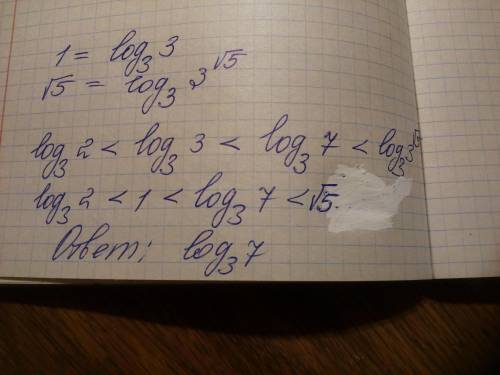 1 = log₃ 3
√5 = log₃ 3^√5
log₃ 2 < log₃ 3 < log₃ 7 < log₃ 3^√5
log₃ 2 < 1 < log₃ 7 < √5.
Ответ: log₃ 7